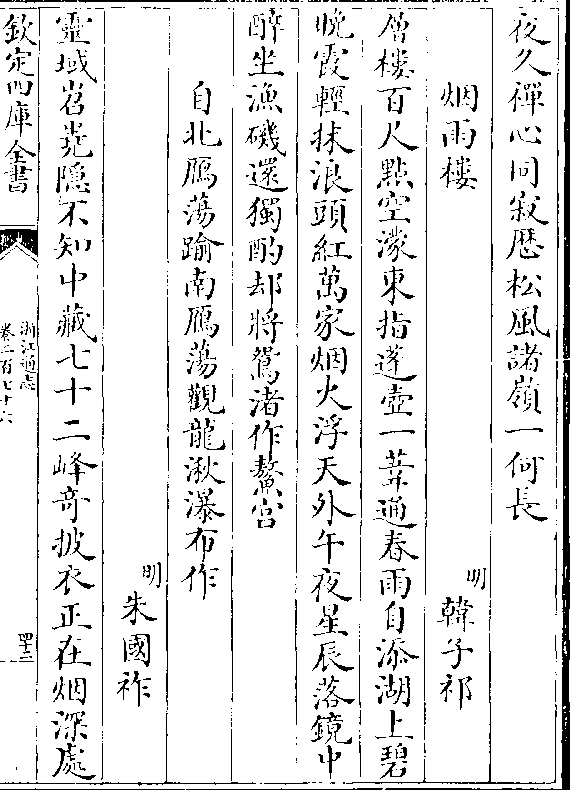 夜久禪心同寂歴松風諸嶺一何長
烟雨樓
明韓子祁
層樓百尺點空濛東指蓬壺一葦通春雨自添湖上碧
晚霞輕抹浪頭紅萬家烟火浮天外午夜星辰落鏡中
醉坐漁磯還獨酌却將鴛渚作鰲宫
自北鴈蕩踰南鴈蕩觀龍湫瀑布作
明朱國祚
靈域岧嶤隱不知中藏七十二峰竒披衣正在烟深處
欽定四庫全書
浙江通志
卷二百七十六
四十二